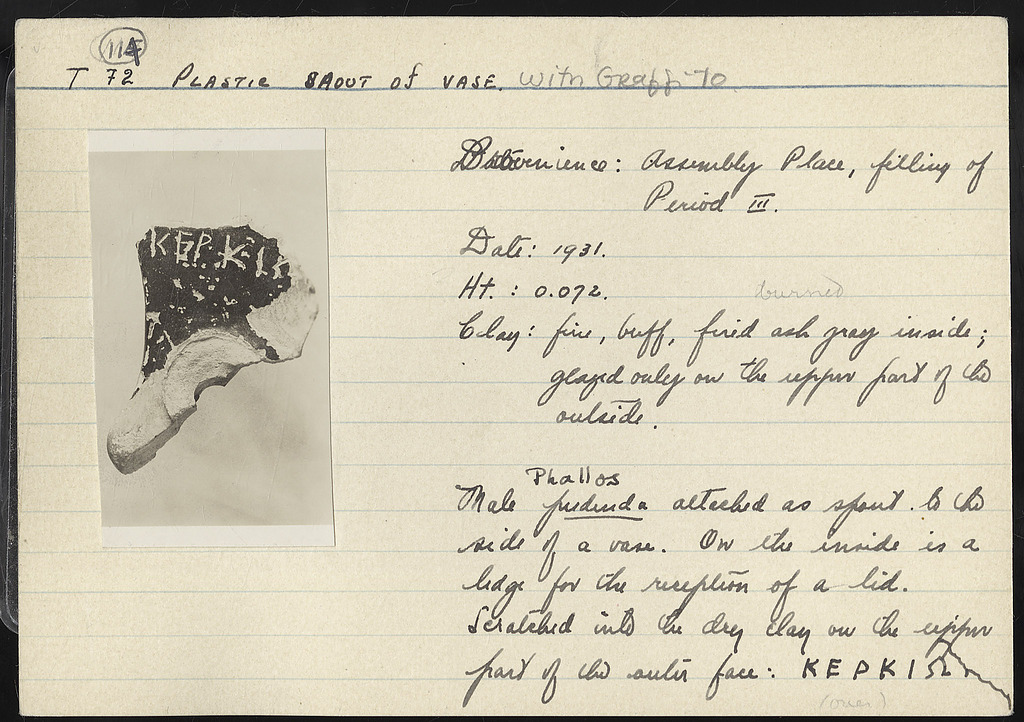 114
T 72 PLASTIC SPOUT OF VASE. With Graffito
Provenience: Assembly Place, filling of
Period III.
Date: 1931.
Ht. : 0.072.
burned
Clay: fine, buff, fired ash gray inside;
glazed only on the upper part of the
outside.
Phallos
Male pudenda attached as spout to the
side of a vase. On the inside is a
ledge for the reception of a lid.
Scratched into the dry clay on the upper
part of the outer face: ΚΕΡΚΙΣ
(over)
ΚΕΡΚΙ